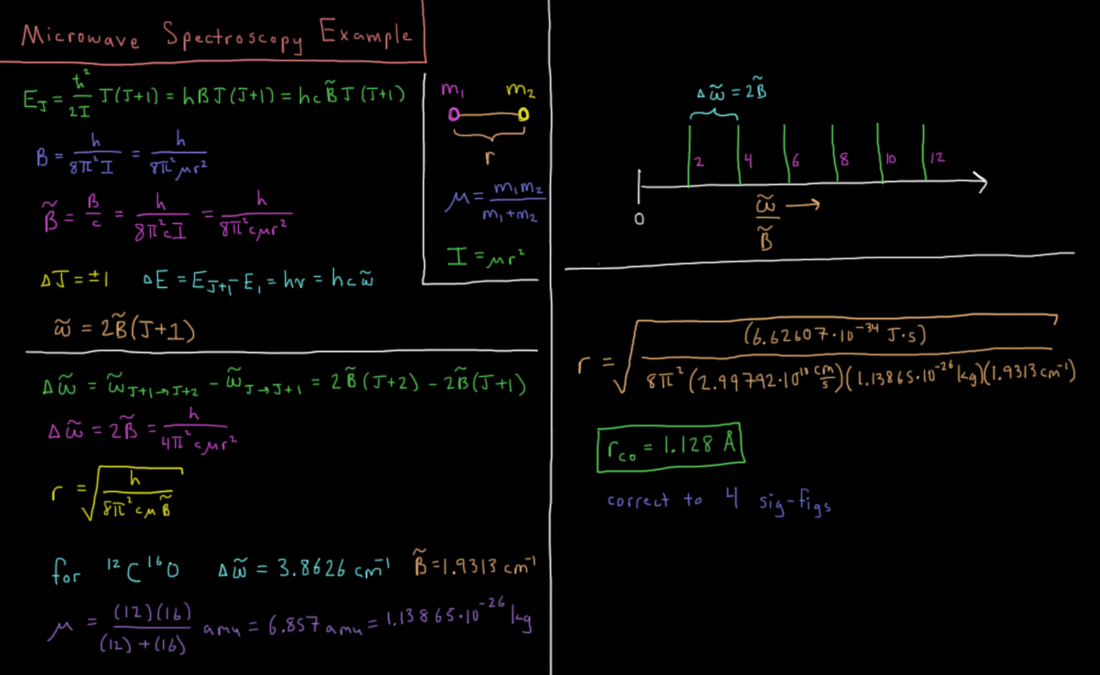 Microwave Spectroscopy Example
E_J = ħ²/2I J(J+1) = hBJ(J+1) = hcB̃J(J+1)
B = h/8π²I = h/8π²μr²
B̃ = B/c = h/8π²cI = h/8π²cμr²
ΔJ = ±1 ΔE = E_J+1 - E_1 = hν = hcω̃
ω̃ = 2B̃(J+1)
m₁ m₂
r
μ = m₁m₂/m₁+m₂
I = μr²
Δω̃ = ω̃_J+1→J+2 - ω̃_J→J+1 = 2B̃(J+2) - 2B̃(J+1)
Δω̃ = 2B̃ = h/4π²cμr²
r = √(h/8π²cμB̃)
for ¹²C¹⁶O Δω̃ = 3.8626 cm⁻¹ B̃ = 1.9313 cm⁻¹
μ = (12)(16)/(12)+(16) amu = 6.857 amu = 1.13865·10⁻²⁶ kg
Δω̃ = 2B̃
2 4 6 8 10 12
0
ω̃/B̃ →
r = √((6.62607·10⁻³⁴ J·s)/8π²(2.99792·10¹⁰ cm/s)(1.13865·10⁻²⁶ kg)(1.9313 cm⁻¹))
r_CO = 1.128 Å
correct to 4 sig-figs